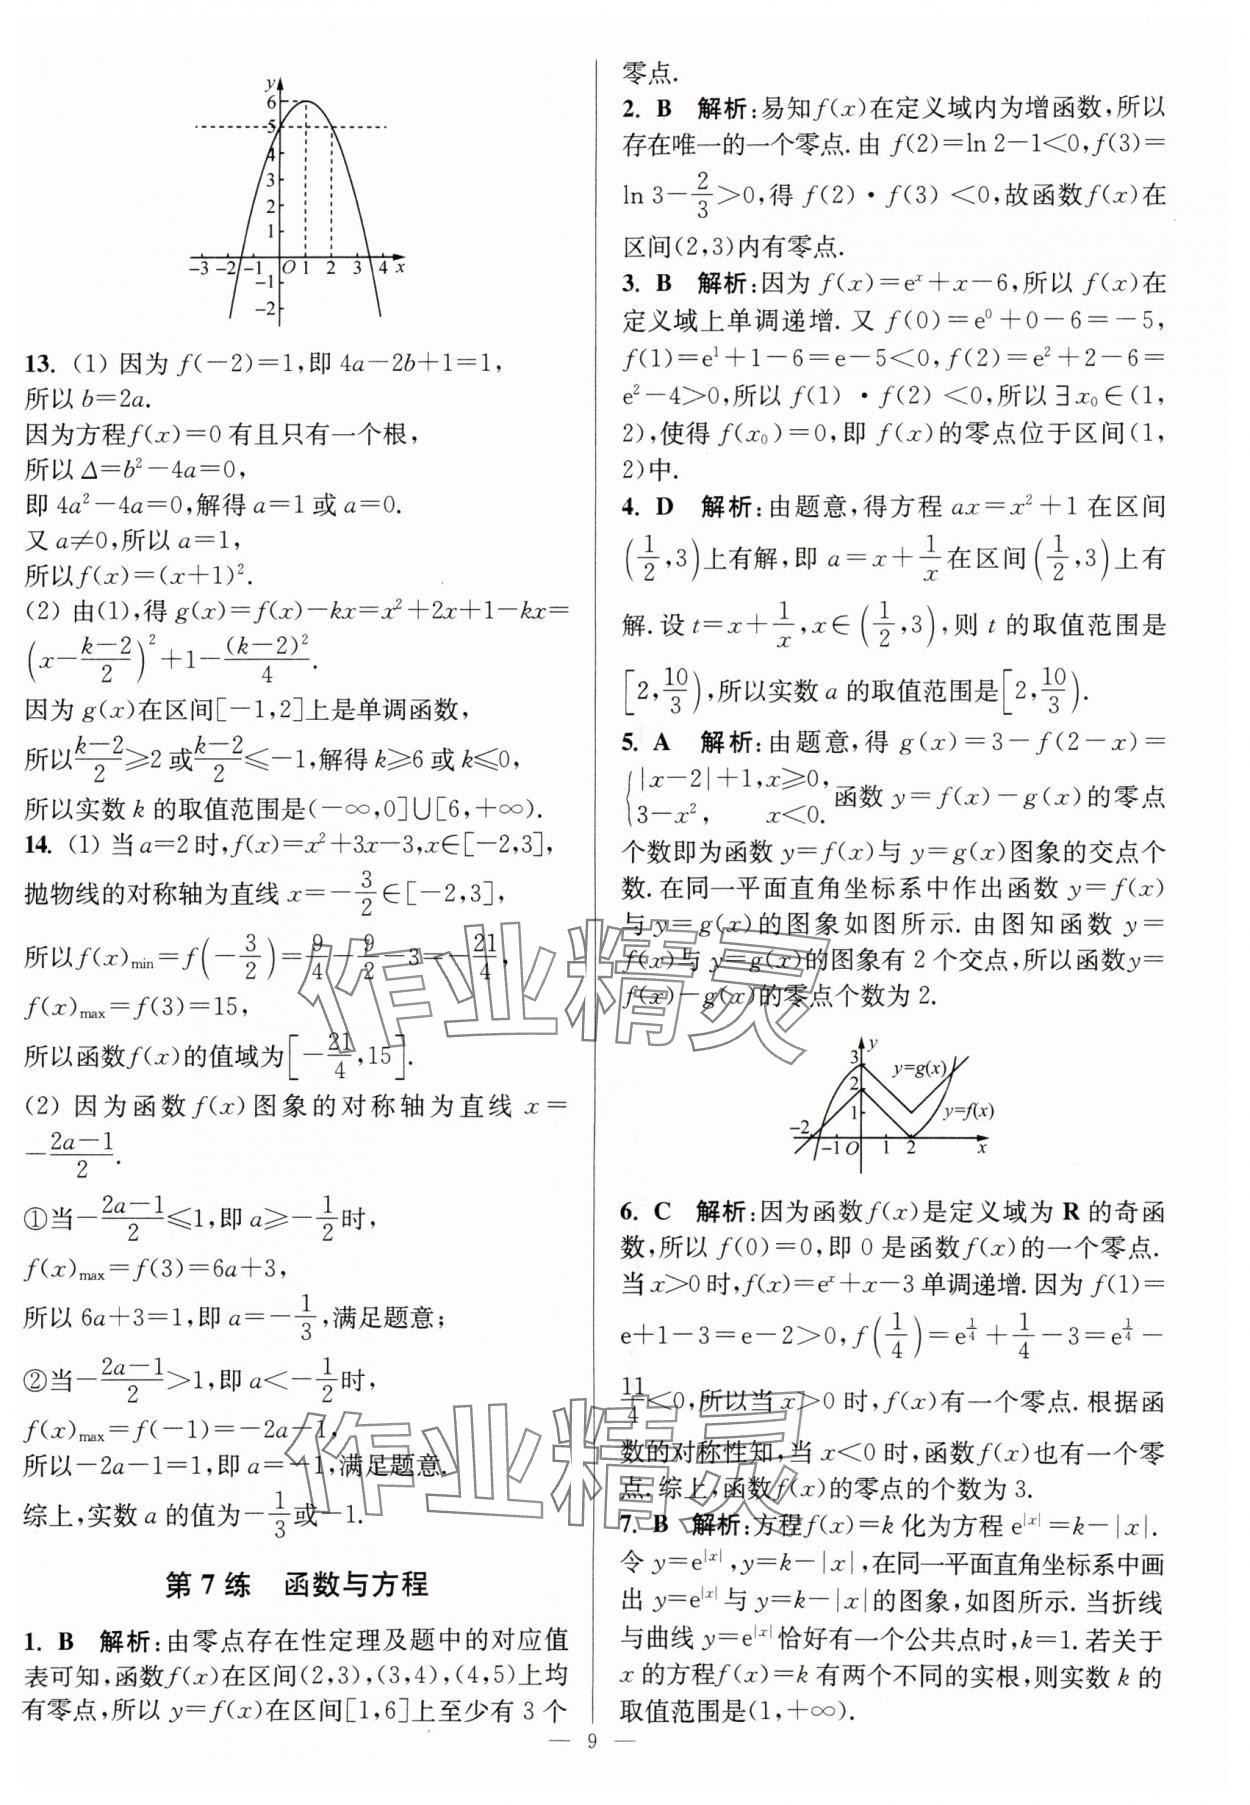 y
6
5
4
3
2
1
-3 -2 -1 O 1 2 3 4 x
-1
-2
13. (1) 因为 f(-2)=1,即 4a-2b+1=1,
所以 b=2a.
因为方程f(x)=0 有且只有一个根,
所以 Δ=b²-4a=0,
即 4a²-4a=0,解得 a=1 或 a=0.
又 a≠0,所以 a=1,
所以f(x)=(x+1)².
(2) 由(1),得 g(x)=f(x)-kx=x²+2x+1-kx=
(x-\frac{k-2}{2})²+1-\frac{(k-2)²}{4}.
因为 g(x)在区间[-1,2]上是单调函数,
所以\frac{k-2}{2}≥2 或\frac{k-2}{2}≤-1,解得 k≥6 或 k≤0,
所以实数 k 的取值范围是(-∞,0]∪[6,+∞).
14. (1) 当 a=2时,f(x)=x²+3x-3,x∈[-2,3],
抛物线的对称轴为直线 x=-\frac{3}{2}∈[-2,3],
所以f(x)_{min}=f(-\frac{3}{2})=\frac{9}{4}-\frac{9}{2}-3=-\frac{21}{4},
f(x)_{max}=f(3)=15,
所以函数f(x)的值域为[-\frac{21}{4},15].
(2) 因为函数 f(x)图象的对称轴为直线 x=
-\frac{2a-1}{2}.
①当-\frac{2a-1}{2}≤1,即 a≥-\frac{1}{2}时,
f(x)_{max}=f(3)=6a+3,
所以 6a+3=1,即 a=-\frac{1}{3},满足题意;
②当-\frac{2a-1}{2}>1,即 a<-\frac{1}{2}时,
f(x)_{max}=f(-1)=-2a-1,
所以-2a-1=1,即 a=-1,满足题意.
综上,实数 a 的值为-\frac{1}{3}或-1.
第 7 练 函数与方程
1. B 解析:由零点存在性定理及题中的对应值
表可知,函数f(x)在区间(2,3),(3,4),(4,5)上均
有零点,所以 y=f(x)在区间[1,6]上至少有 3 个
零点.
2. B 解析:易知f(x)在定义域内为增函数,所以
存在唯一的一个零点.由 f(2)=ln 2-1<0,f(3)=
ln 3-\frac{2}{3}>0,得 f(2)·f(3)<0,故函数f(x)在
区间(2,3)内有零点.
3. B 解析:因为 f(x)=eˣ+x-6,所以 f(x)在
定义域上单调递增.又 f(0)=e⁰+0-6=-5,
f(1)=e¹+1-6=e-5<0,f(2)=e²+2-6=
e²-4>0,所以 f(1)·f(2)<0,所以∃x₀∈(1,
2),使得 f(x₀)=0,即 f(x)的零点位于区间(1,
2)中.
4. D 解析:由题意,得方程 ax=x²+1 在区间
(\frac{1}{2},3)上有解,即 a=x+\frac{1}{x}在区间(\frac{1}{2},3)上有
解.设 t=x+\frac{1}{x},x∈(\frac{1}{2},3),则 t 的取值范围是
[2,\frac{10}{3}),所以实数 a 的取值范围是[2,\frac{10}{3}).
5. A 解析:由题意,得 g(x)=3-f(2-x)=
{|x-2|+1,x≥0,
3-x², x<0. 函数 y=f(x)-g(x)的零点
个数即为函数 y=f(x)与 y=g(x)图象的交点个
数.在同一平面直角坐标系中作出函数 y=f(x)
与 y=g(x)的图象如图所示.由图知函数 y=
f(x)与 y=g(x)的图象有 2 个交点,所以函数y=
f(x)-g(x)的零点个数为 2.
y
3
2
1
y=g(x)
y=f(x)
-2 -1 O 1 2 x
6. C 解析:因为函数f(x)是定义域为 R 的奇函
数,所以 f(0)=0,即 0 是函数f(x)的一个零点.
当 x>0 时,f(x)=eˣ+x-3 单调递增.因为 f(1)=
e+1-3=e-2>0,f(\frac{1}{4})=e^{\frac{1}{4}}+\frac{1}{4}-3=e^{\frac{1}{4}}-
\frac{11}{4}<0,所以当 x>0 时,f(x)有一个零点.根据函
数的对称性知,当 x<0 时,函数f(x)也有一个零
点.综上,函数f(x)的零点的个数为 3.
7. B 解析:方程f(x)=k 化为方程 e^{|x|}=k-|x|.
令 y=e^{|x|},y=k-|x|,在同一平面直角坐标系中画
出 y=e^{|x|}与 y=k-|x|的图象,如图所示.当折线
与曲线 y=e^{|x|}恰好有一个公共点时,k=1.若关于
x 的方程f(x)=k 有两个不同的实根,则实数 k 的
取值范围是(1,+∞).
— 9 —
作业精灵
作业精灵